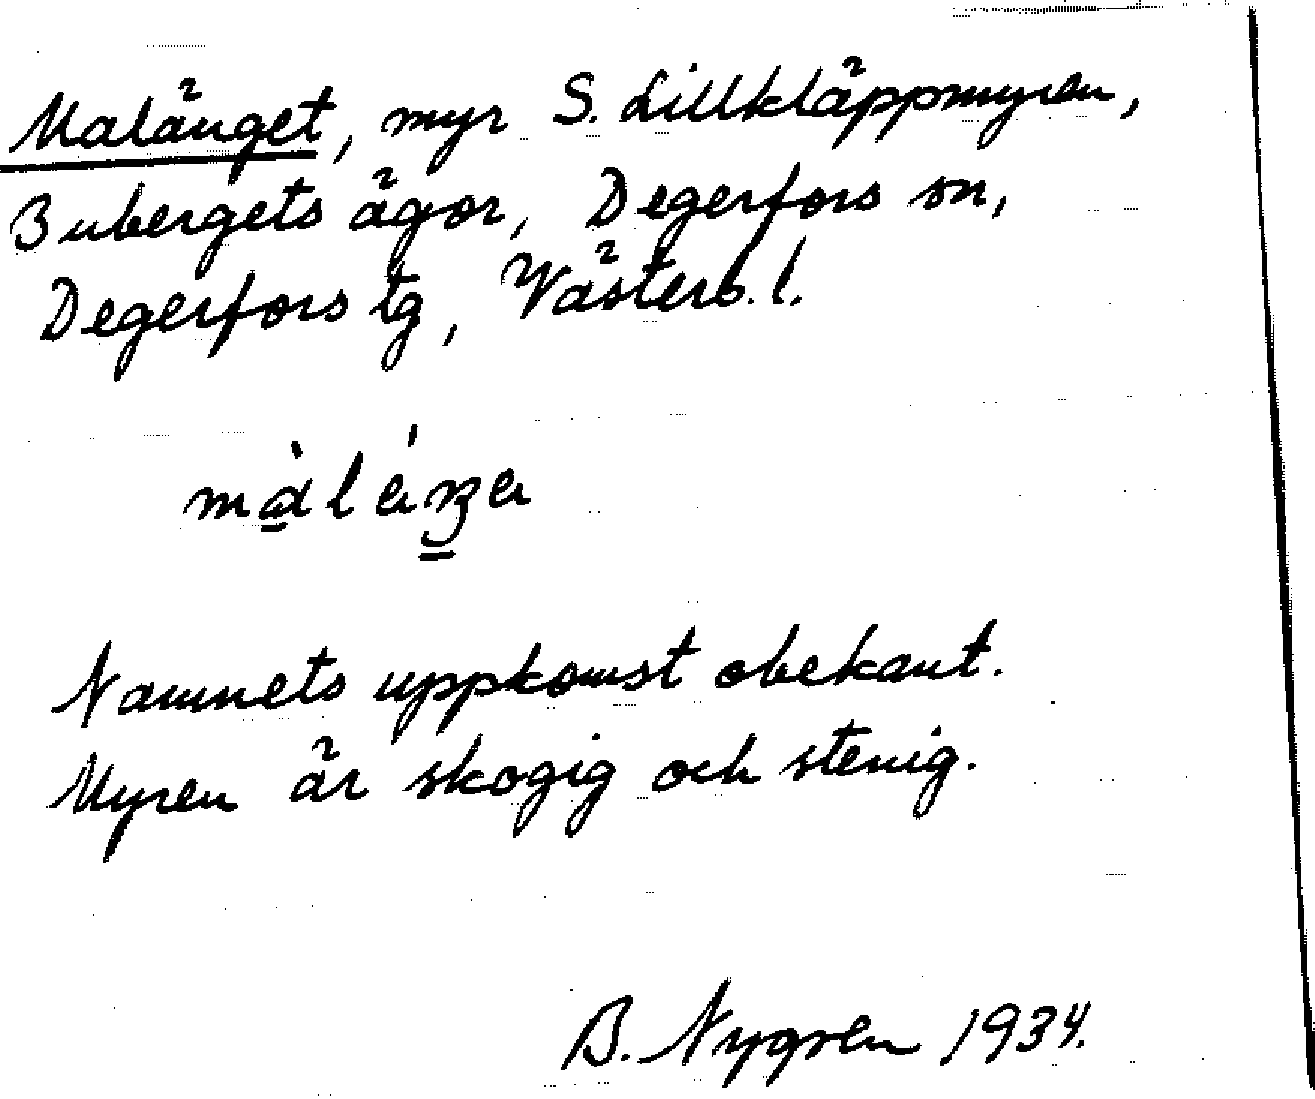 Malänget, myr S. Lillkläppmyren,
Bubergets ägor, Degerfors sn,
Degerfors tg, Västerb. l.
Namnets uppkomst obekant.
Myren är skogig och stenig.
B. Nygren 1934.